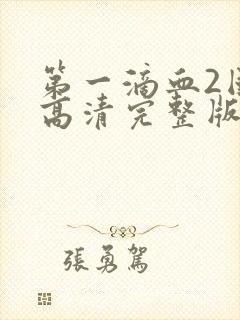 第一滴血2
高清完整版
張勇駕